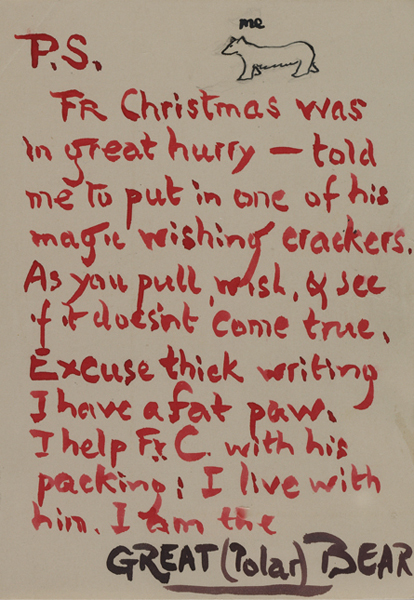 me
P.S.
FR Christmas was
in great hurry — told
me to put in one of his
magic wishing crackers.
As you pull, wish, & see
if it doesn't come true.
Excuse thick writing
I have a fat paw.
I help Fr C. with his
packing: I live with
him. I am the
GREAT (Polar) BEAR